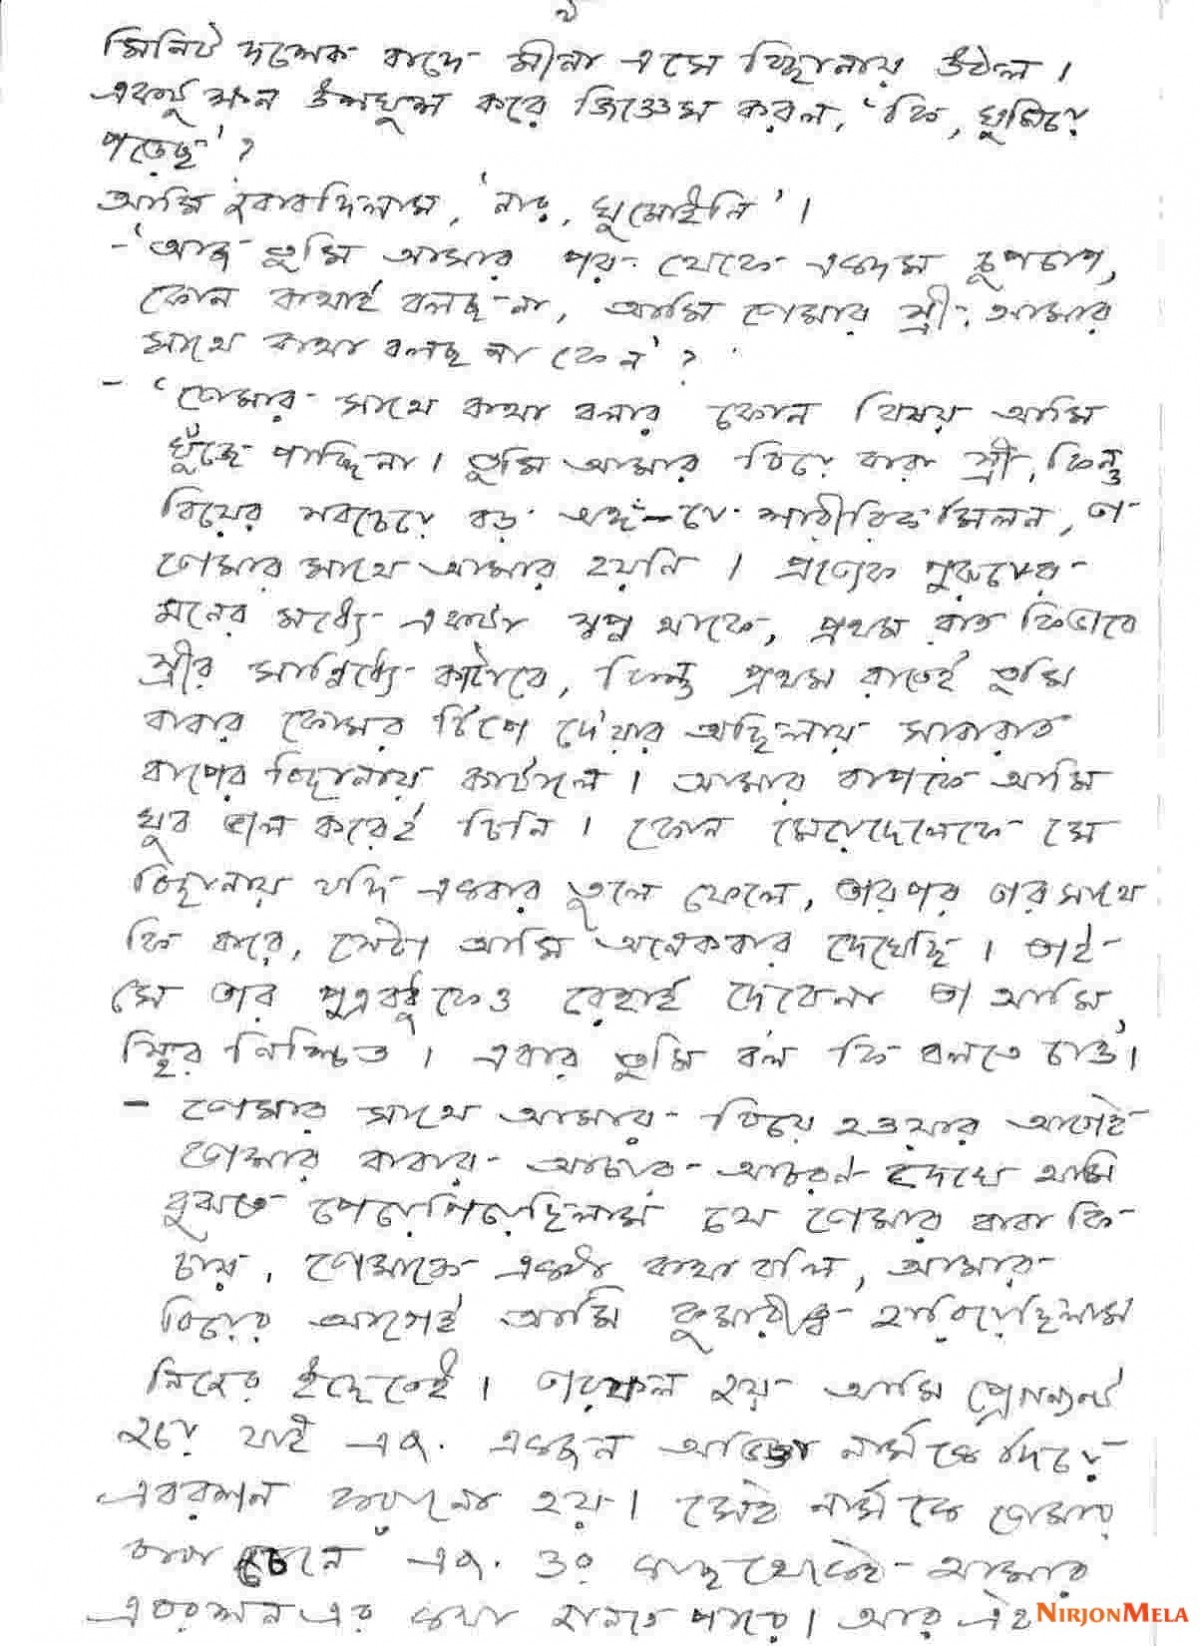 ২
মিনিট দশেক বাদে মীনা এসে বিছানায় উঠল ।
একটু ক্ষন উসখুস করে জিজ্ঞেস করল, 'কি, ঘুমিয়ে
পড়েছ' ?
আমি জবাব দিলাম, 'নাহ, ঘুমোইনি' ।
- 'আজ তুমি আসার পর থেকে একদম চুপচাপ,
কোন কথাই বলছ না, আমি তোমার স্ত্রী. আমার
সাথে কথা বলছ না কেন' ?
- 'তোমার সাথে কথা বলার কোন বিষয় আমি
খুঁজে পাচ্ছিনা । তুমি আমার বিয়ে করা স্ত্রী, কিন্তু
বিয়ের সবচেয়ে বড় অঙ্গ যে শারীরিক মিলন, তা
তোমার সাথে আমার হয়নি । প্রত্যেক পুরুষের
মনের মধ্যে একটা স্বপ্ন থাকে, প্রথম রাত কিভাবে
স্ত্রীর সান্নিধ্যে কাটাবে, কিন্তু প্রথম রাতেই তুমি
বাবার কোমর টিপে দেয়ার অছিলায় সারারাত
বাপের বিছানায় কাটালে । আমার বাপকে আমি
খুব ভাল করেই চিনি । কোন মেয়েছেলেকে সে
বিছানায় যদি একবার তুলে ফেলে, তারপর তার সাথে
কি করে, সেটা আমি অনেকবার দেখেছি । তাই
সে তার পুত্রবধুকেও রেহাই দেবেনা তা আমি
স্থির নিশ্চিত । এবার তুমি বল কি বলতে চাও।
- তোমার সাথে আমার বিয়ে হওয়ার আগেই
তোমার বাবার আচার আচরন দেখে আমি
বুঝতে পেরে গিয়েছিলাম যে তোমার বাবা কি
চায়, তোমাকে একটা কথা বলি, আমার
বিয়ের আগেই আমি কুমারীত্ব হারিয়েছিলাম
নিজের ইচ্ছেতেই । তারফল হয় আমি প্রেগন্যান্ট
হয়ে যাই এবং একজন নার্সকে দিয়ে
এবরশন করানো হয় । সেই নার্স কে তোমার
বাবা চেনে এবং ওর কাছ থেকেই আমার
এবরশন এর কথা জানতে পারে । আর এই
NIRJONMELA